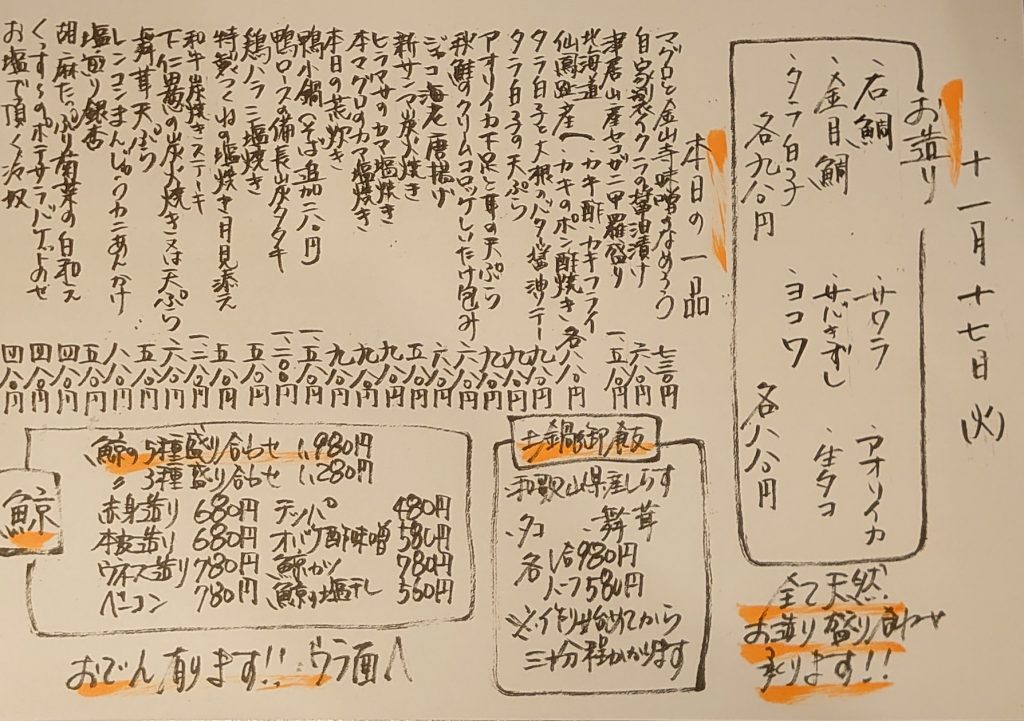 十一月十七日(火)
お造り
・石鯛
・金目鯛
・タラ白子
各九八〇円
・サワラ
・サバきずし
・ヨコワ
・アオリイカ
・生タコ
各八八〇円
全て天然
お造り盛り合わせ
承ります!!
本日の一品
マグロと金山寺味噌のなめろう 七三〇円
自家製イクラの醤油漬け 六八〇円
津居山産セコガニ甲羅盛り 一、五八〇円
北海道
仙鳳趾産へ・カキ酢・カキフライ
・カキのポン酢焼き 各八八〇円
タラ白子と大根のバター醤油ソテー 九八〇円
タラ白子の天ぷら 九八〇円
アオリイカ下足と茸の天ぷら 九八〇円
秋鮭のクリームコロッケしいたけ包み 六八〇円
ジャコ海老唐揚げ 六八〇円
新サンマ炭火焼き 八八〇円
ヒラマサのカマ塩焼き 九八〇円
本マグロのカマ塩焼き 九八〇円
本日の荒炊き 九八〇円
鴨小鍋(そば追加二八〇円) 一、五八〇円
鴨ロースの備長炭タタキ 一、二〇〇円
鶏ハラミ塩焼き 五八〇円
特製つくねの塩焼き月見添え 五八〇円
和牛炭焼きステーキ 一、二八〇円
下仁田葱の炭火焼き又は天ぷら 六八〇円
舞茸天ぷら 五八〇円
レンコンまんじゅうカニあんかけ 八八〇円
塩煎り銀杏 五八〇円
胡麻たっぷり菊菜の白和え 四八〇円
くっすーのポテサラバゲットのせ 四八〇円
お塩で頂く冷奴 四八〇円
土鍋御飯
・和歌山県産しらす
・タコ ・舞茸
各1合980円
ハーフ580円
※作り始めてから
三十分程かかります
鯨
鯨の5種盛り合わせ 1,980円
〃 3種盛り合わせ 1,280円
赤身造り 680円
本皮造り 680円
ウネス造り 780円
ベーコン 780円
テッパ 480円
オバケ酢味噌 580円
鯨カツ 780円
鯨の塩干し 560円
おでん有ります!! ウラ面へ